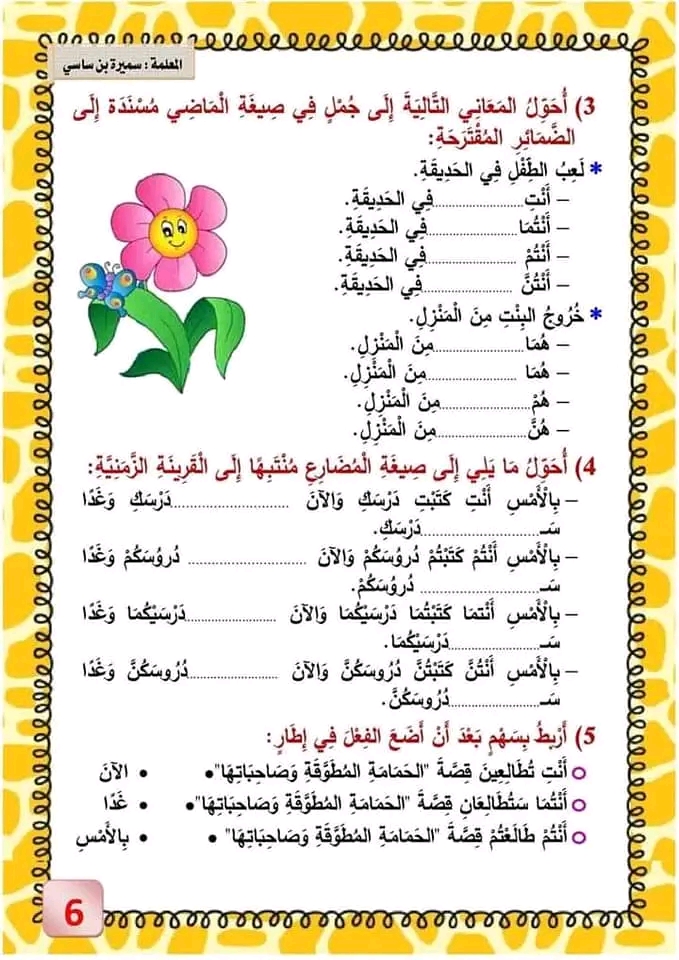 المعلمة : سميرة بن ساسي
3) أُحَوِّلُ المَعَانِي التَّالِيَةَ إِلَى جُمْلٍ فِي صِيغَةِ الْمَاضِي مُسْنَدَة إِلَى
الضَّمَائِرِ المُقْتَرَحَةِ:
* لَعِبُ الطِّفْلِ فِي الحَدِيقَةِ.
– أَنْتِ......................فِي الحَدِيقَةِ.
– أَنْتُمَا......................فِي الحَدِيقَةِ.
– أَنْتُمْ ......................فِي الحَدِيقَةِ.
– أَنْتُنَّ ......................فِي الحَدِيقَةِ.
* خُرُوجُ البِنْتِ مِنَ الْمَنْزِلِ.
– هُمَا......................مِنَ الْمَنْزِلِ.
– هُمَا ......................مِنَ الْمَنْزِلِ.
– هُمْ......................مِنَ الْمَنْزِلِ.
– هُنَّ......................مِنَ الْمَنْزِلِ.
4) أُحَوِّلُ مَا يَلِي إِلَى صِيغَةِ الْمُضَارِعِ مُنْتَبِهًا إِلَى الْقَرِينَةِ الزَّمَنِيَّةِ:
– بِالْأَمْسِ أَنْتِ كَتَبْتِ دَرْسَكِ وَالآنَ ............................دَرْسَكِ وَغَدًا
سَـ............................دَرْسَكِ.
– بِالْأَمْسِ أَنْتُمْ كَتَبْتُمْ دُرُوسَكُمْ وَالآنَ ............................ دُرُوسَكُمْ وَغَدًا
سَـ............................ دُرُوسَكُمْ.
– بِالْأَمْسِ أَنْتمَا كَتَبْتُمَا دَرْسَيْكُمَا وَالآنَ ......................دَرْسَيْكُمَا وَغَدًا
سَـ............................دَرْسَيْكُمَا.
– بِالْأَمْسِ أَنْتُنَّ كَتَبْتُنَّ دُرُوسَكُنَّ وَالآنَ ......................دُرُوسَكُنَّ وَغَدًا
سَـ......................دُرُوسَكُنَّ.
5) أَرْبِطُ بِسَهْمٍ بَعْدَ أَنْ أَضَعَ الفِعْلَ فِي إِطَارٍ:
○ أَنْتِ تُطَالِعِينَ قِصَّةَ "الحَمَامَةِ المُطَوَّقَةِ وَصَاحِبَاتِهَا"• • الآنَ
○ أَنْتُمَا سَتُطَالِعَانِ قِصَّةَ "الحَمَامَةِ المُطَوَّقَةِ وَصَاحِبَاتِهَا"• • غَدًا
○ أَنْتُمْ طَالَعْتُمْ قِصَّةَ "الحَمَامَةِ المُطَوَّقَةِ وَصَاحِبَاتِهَا" • • بِالأَمْسِ
6